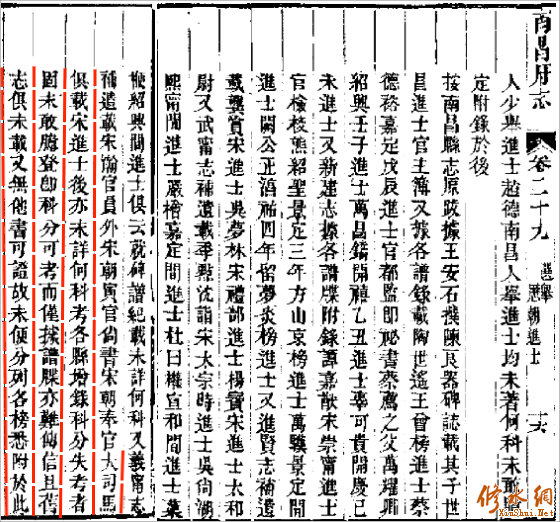 南昌府志 卷二十九 選舉 歷朝進士
人少舉進士趙德南昌人舉進士均未著何科未敢懸
定附錄於後
按南昌縣志原跋據王安石撰陳良器碑誌載其子世
昌進士官主簿又據各譜錄載陶世遙王曾榜進士蔡
德務嘉定戊辰進士官都監卽祕書蔡薦之父萬耀卿
紹興壬子進士萬昌鑄開禧乙丑進士辜可貴開慶己
未進士又新建志據各譜牒附錄譚嘉猷宋崇甯進士
官檢校熊紹聖景定三年方山京榜進士萬驥景定間
進士關公正淳祐四年留夢炎榜進士又進賢志補遺
載龔賞宋進士吳夢林宋禮部進士楊實宋進士太和
尉又武甯志補遺載季點沈詣宋太宗時進士吳尙湖
熙甯間進士嚴檜嘉定間進士杜日機宣和間進士葉
紹興間進士俱云就碑譜紀載未詳何科又義甯志
補遺載宋翰官員外宋朝寅官尙書宋朝奉官大司馬
俱載宋進士後亦未詳何科考各縣增錄科分失考者
固未敢臚登卽科分可考而僅據譜牒亦難傳信且舊
志俱未載又無他書可證故未便分列各榜悉附於此
修水網
XiuShui.Net